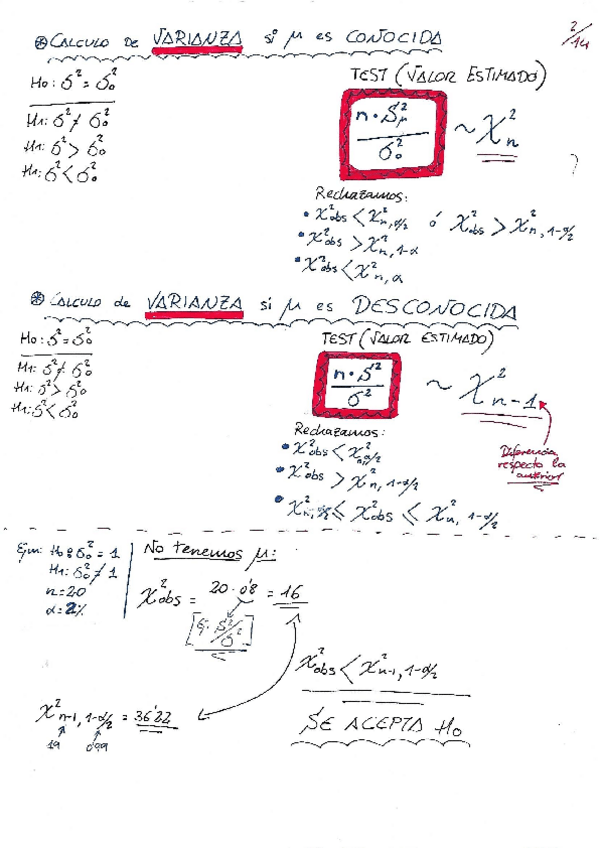 ⊛ CALCULO de VARIANZA si μ es CONOCIDA
2/14
H₀: σ² = σ₀²
H₁: σ² ≠ σ₀²
H₁: σ² > σ₀²
H₁: σ² < σ₀²
TEST (VALOR ESTIMADO)
n · S²μ / σ₀² ~ χ²n
Rechazamos:
• χ²obs < χ²n, α/2 ó χ²obs > χ²n, 1-α/2
• χ²obs > χ²n, 1-α
• χ²obs < χ²n, α
⊛ CALCULO de VARIANZA si μ es DESCONOCIDA
H₀: σ² = σ₀²
H₁: σ² ≠ σ₀²
H₁: σ² > σ₀²
H₁: σ² < σ₀²
TEST (VALOR ESTIMADO)
n · S² / σ² ~ χ²n-1
Diferencia
respecto la
anterior
Rechazamos:
• χ²obs < χ²n, α/2
• χ²obs > χ²n, 1-α/2
• χ²n, α/2 ≤ χ²obs ≤ χ²n, 1-α/2
Ejm: H₀: σ₀² = 1
H₁: σ₀² ≠ 1
n=20
α=2%
No tenemos μ:
χ²obs = 20 · 0'8 = 16
S²/σ²
χ²obs < χ²n-1, 1-α/2
χ²n-1, 1-α/2 = 36'22
19 0'99
SE ACEPTA H₀